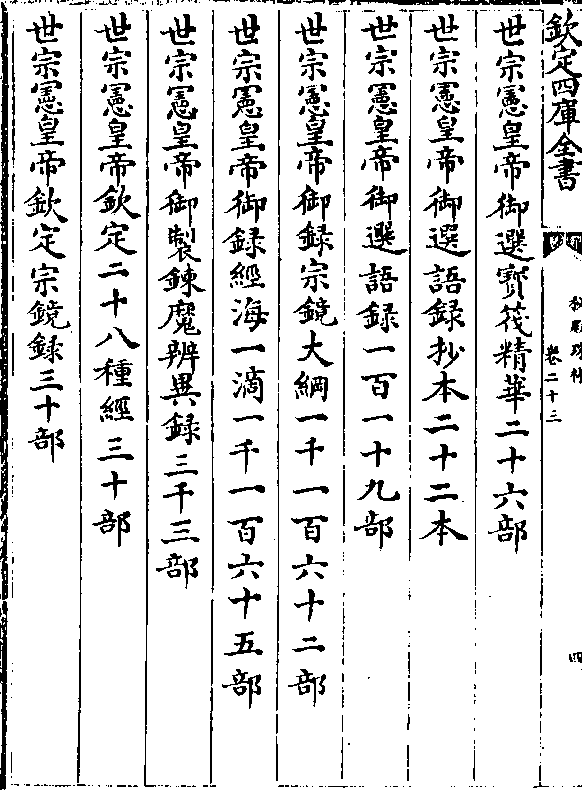 欽定四庫全書
卷二十三
四
世宗憲皇帝御選寶筏精華二十六部
世宗憲皇帝御選語録抄本二十二本
世宗憲皇帝御選語録一百一十九部
世宗憲皇帝御録宗鏡大綱一千一百六十二部
世宗憲皇帝御録經海一滴一千一百六十五部
世宗憲皇帝御製鍊魔辨異録三千三部
世宗憲皇帝欽定二十八種經三十部
世宗憲皇帝欽定宗鏡録三十部